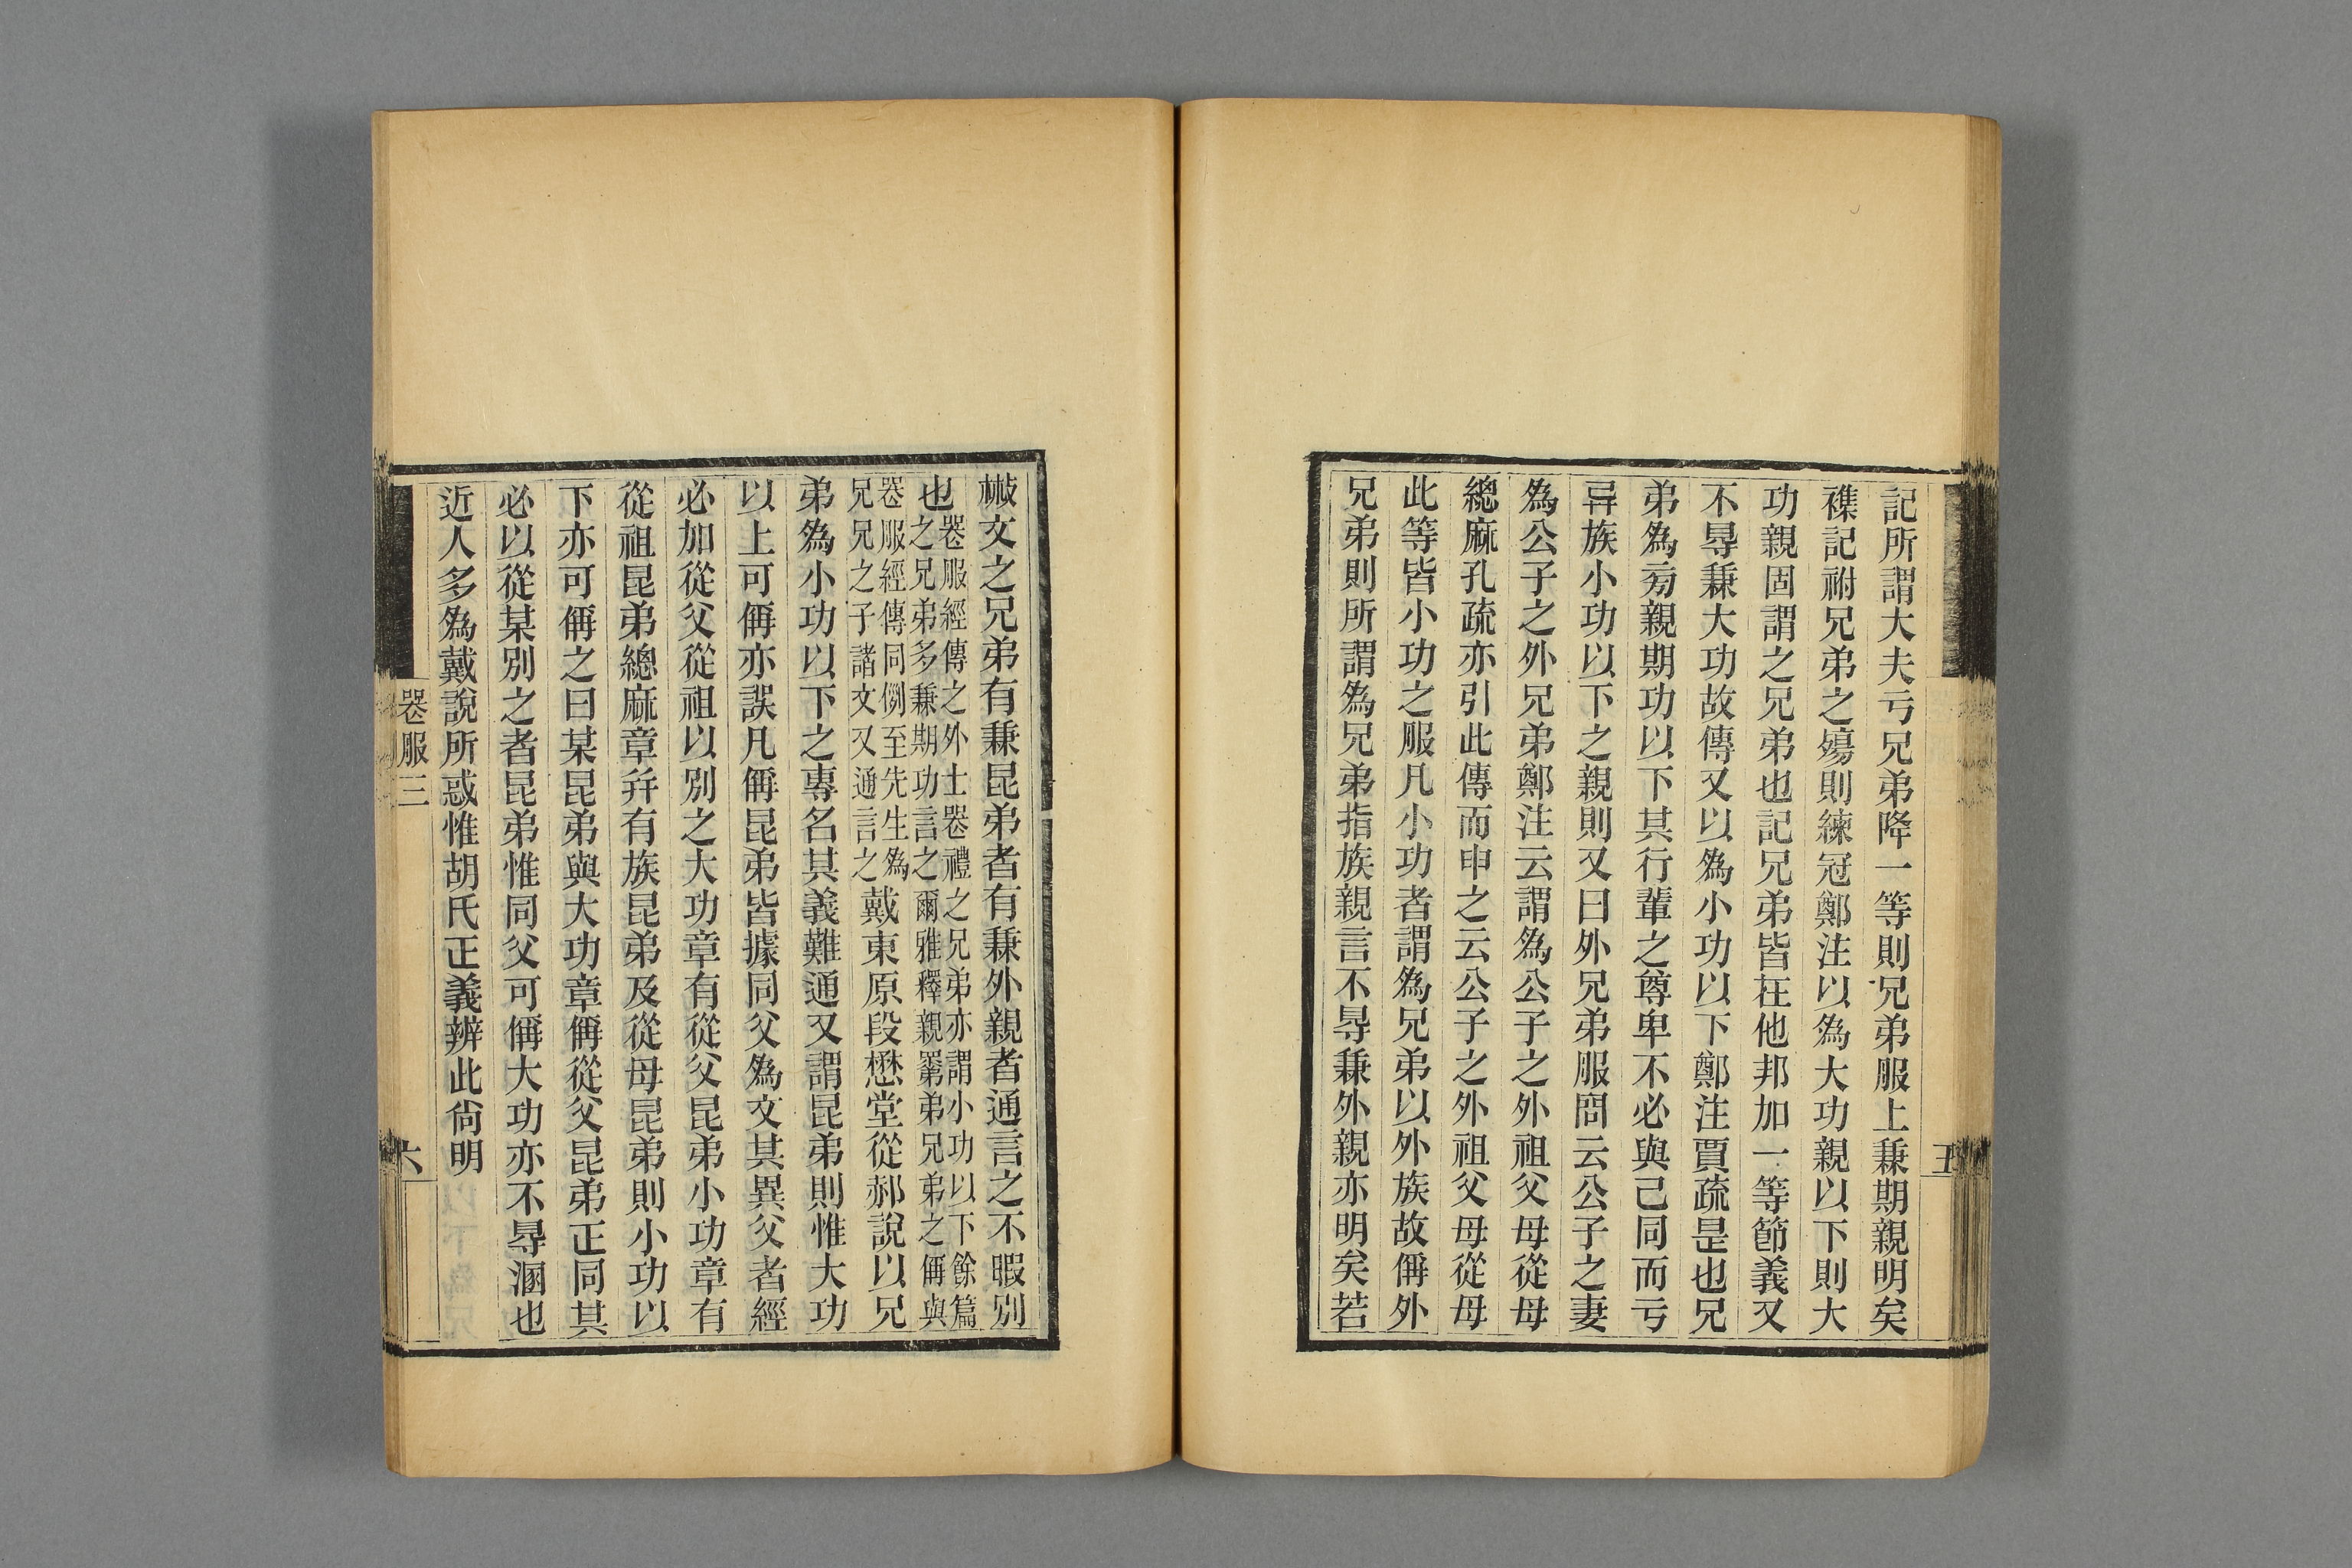 記所謂大夫亏兄弟降一等則兄弟服上兼期親明矣
襍記祔兄弟之殤則練冠鄭注以爲大功親以下則大
功親固謂之兄弟也記兄弟皆在他邦加一等節義又
不㝵兼大功故傳又以爲小功以下鄭注賈疏是也兄
弟爲㫄親期功以下其行輩之尊卑不必與己同而亏
異族小功以下之親則又曰外兄弟服問云公子之妻
爲公子之外兄弟鄭注云謂爲公子之外祖父母從母
緦麻孔疏亦引此傳而申之云公子之外祖父母從母
此等皆小功之服凡小功者謂爲兄弟以外族故偁外
兄弟則所謂爲兄弟指族親言不㝵兼外親亦明矣若
五
㪚文之兄弟有兼昆弟者有兼外親者通言之不暇別
也
喪服經傳之外士喪禮之兄弟亦謂小功以下餘篇
之兄弟多兼期功言之爾雅釋親晜弟兄弟之偁與
喪服經傳同例至先生爲
兄兄之子諸文又通言之
戴東原段懋堂從郝說以兄
弟爲小功以下之專名其義難通又謂昆弟則惟大功
以上可偁亦誤凡偁昆弟皆據同父爲文其異父者經
必加從父從祖以別之大功章有從父昆弟小功章有
從祖昆弟緦麻章幷有族昆弟及從母昆弟則小功以
下亦可偁之曰某昆弟與大功章偁從父昆弟正同其
必以從某別之者昆弟惟同父可偁大功亦不㝵溷也
近人多爲戴說所惑惟胡氏正義辨此尙明
喪服三
六